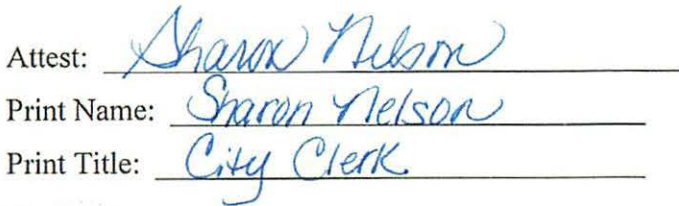 Attest: Sharon Nelson
Print Name: Sharon Nelson
Print Title: City Clerk